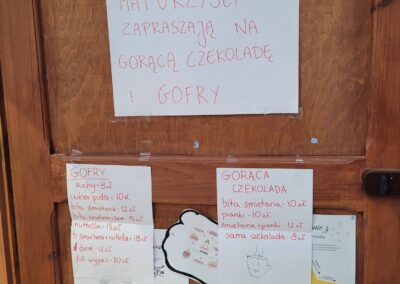 MATURZYŚCI
ZAPRASZAJĄ NA
GORĄCĄ CZEKOLADĘ
I GOFRY
GOFRY
suchy - 8zł
cukier puder - 10zł
bita śmietana - 12 zł
nuttella - 15zł
b. śmietana + nutella - 18 zł
dżem - 12 zł
NA wypas - 20 zł
GORĄCA
CZEKOLADA
bita śmietana - 10 zł
pianki - 10 zł
śmietana + pianki - 12 zł
sama czekolada - 8zł